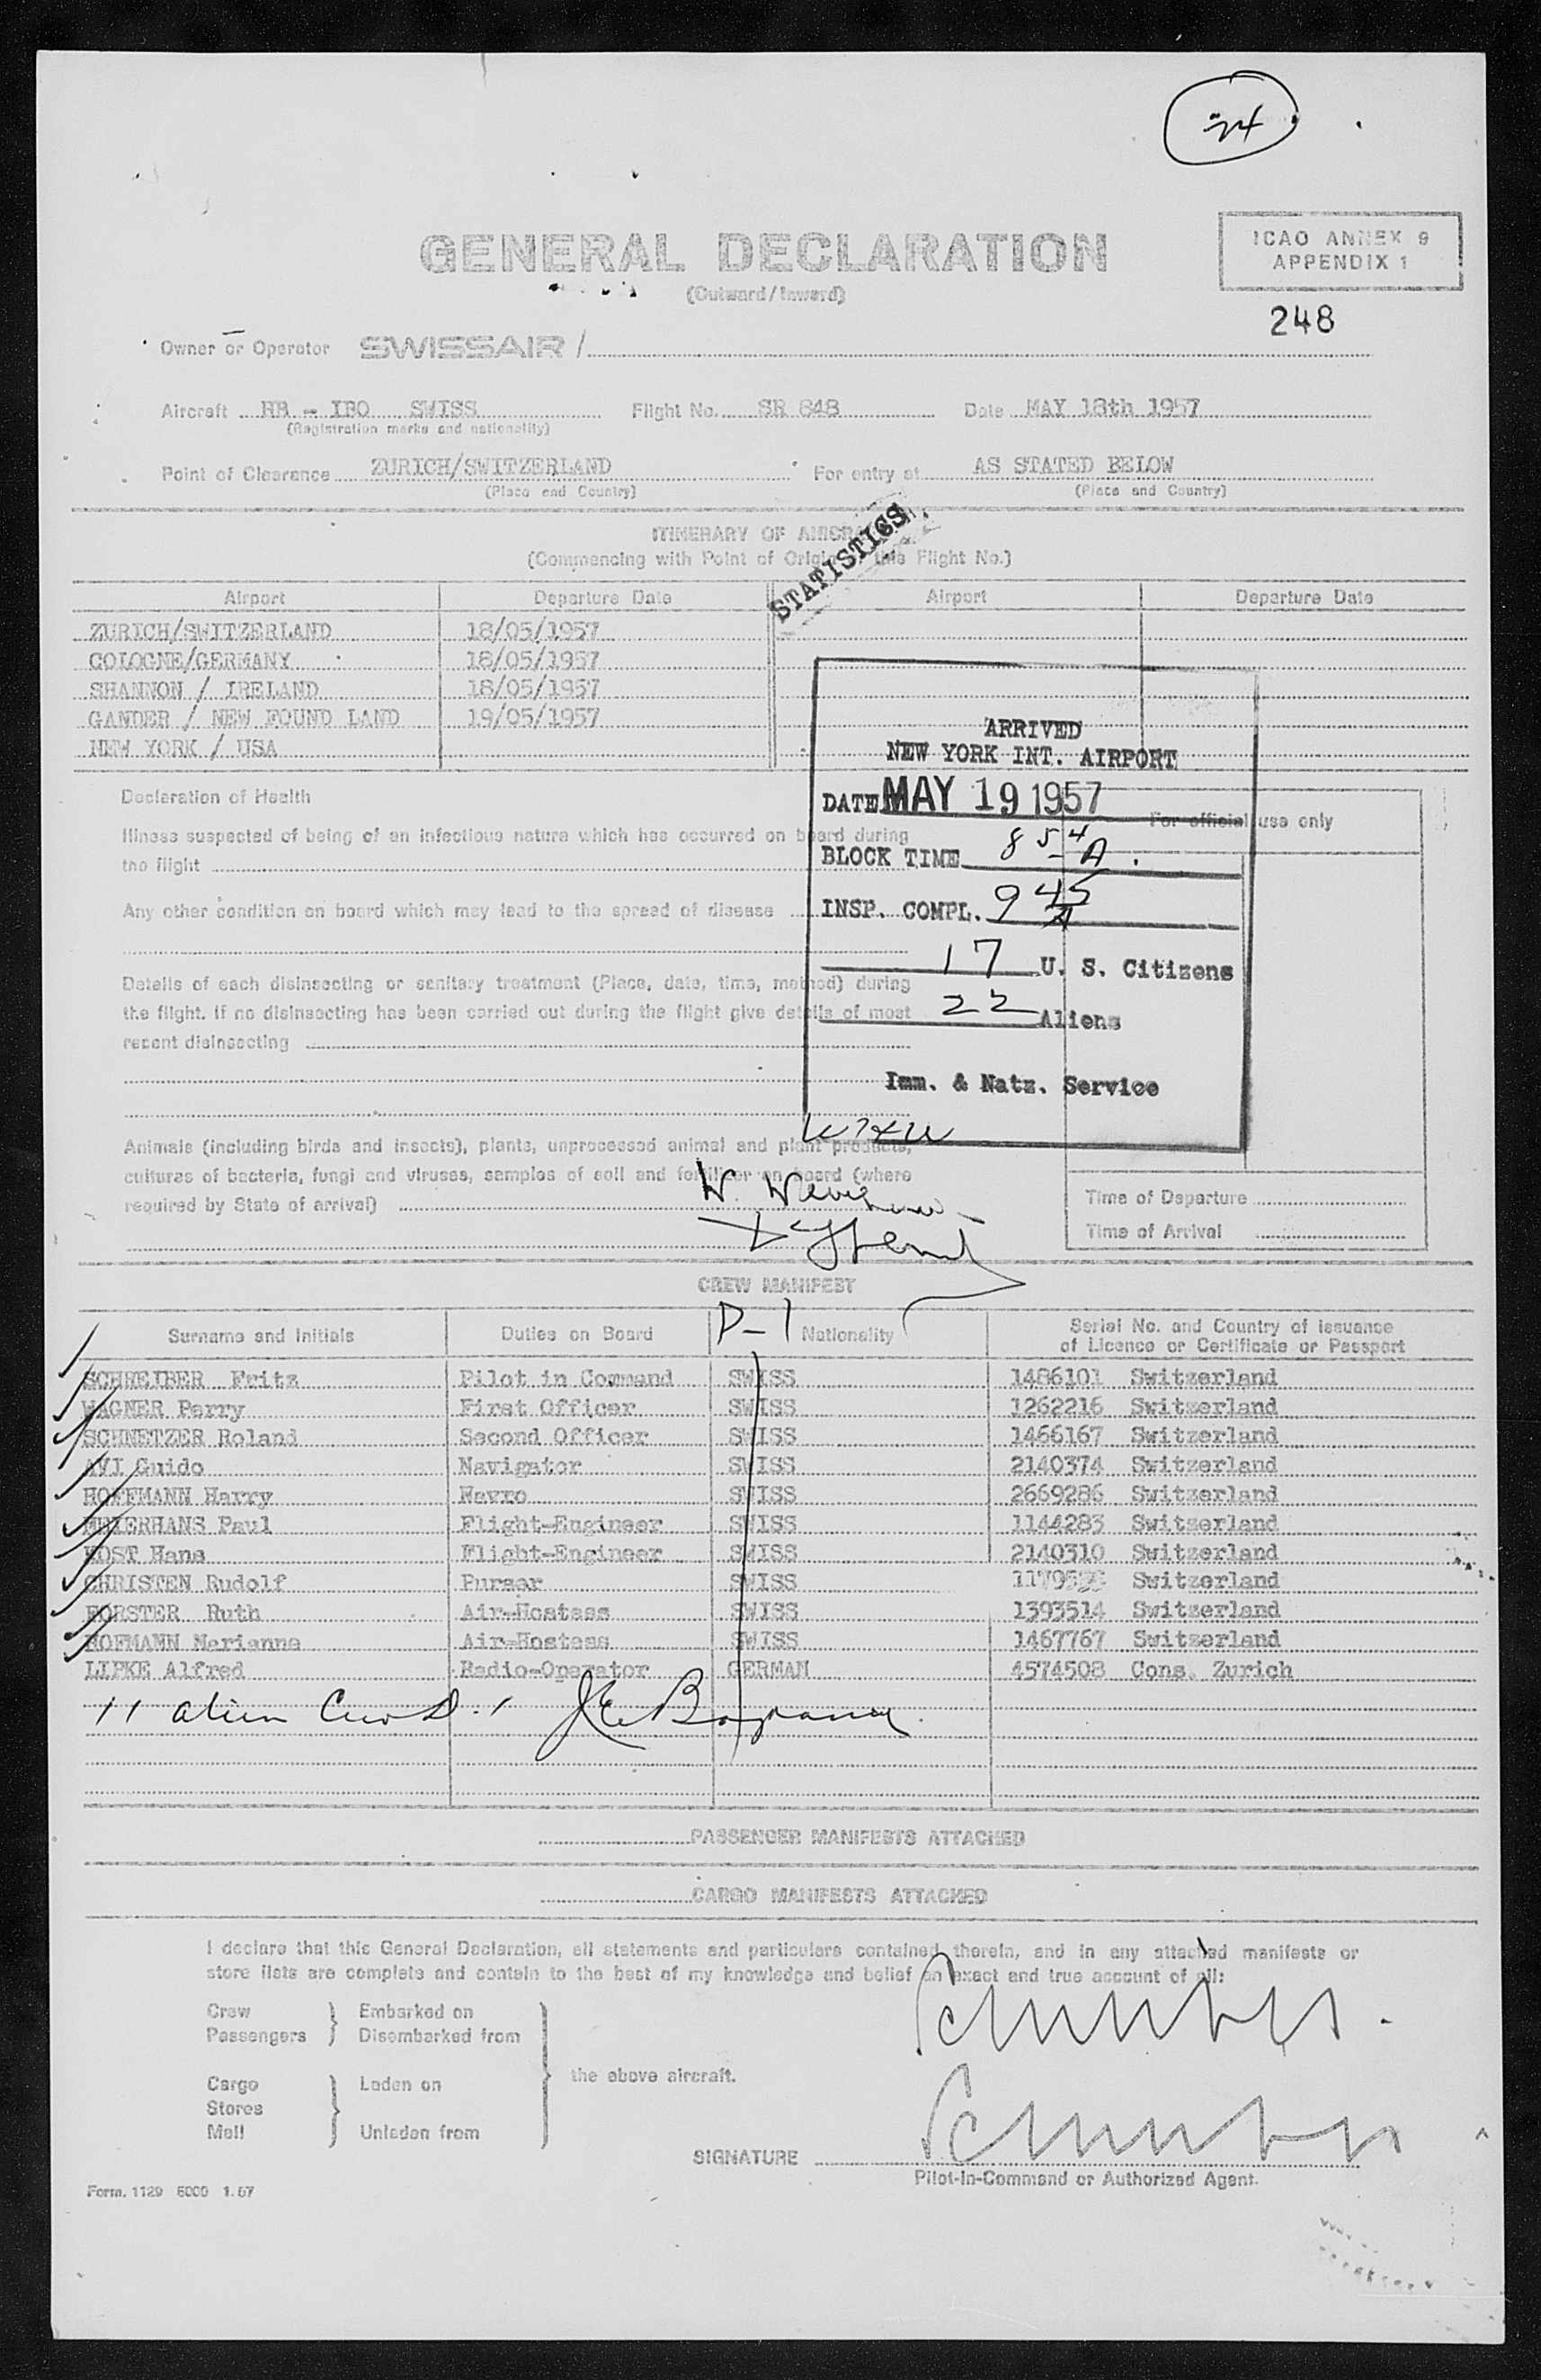 24
GENERAL DECLARATION
(Outward/Inward)
ICAO ANNEX 9
APPENDIX 1
248
Owner or Operator SWISSAIR /
Aircraft HB - IBO SWISS Flight No. SR 848 Date MAY 18th 1957
(Registration marks and nationality)
Point of Clearance ZURICH/SWITZERLAND For entry at AS STATED BELOW
(Place and Country) (Place and Country)
STATISTICS
ITINERARY OF
(Commencing with Point of Origin this Flight No.)
Airport Departure Date Airport Departure Date
ZURICH/SWITZERLAND 18/05/1957
COLOGNE/GERMANY 18/05/1957
SHANNON / IRELAND 18/05/1957
GANDER / NEW FOUND LAND 19/05/1957
NEW YORK / USA
ARRIVED
NEW YORK INT. AIRPORT
DATE MAY 19 1957
BLOCK TIME 8 54 A.
INSP. COMPL. 9 45 A
17 U. S. Citizens
22 Aliens
Imm. & Natz. Service
Declaration of Health
For official use only
Illness suspected of being of an infectious nature which has occurred on board during
the flight
Any other condition on board which may lead to the spread of disease
Details of each disinsecting or sanitary treatment (Place, date, time, method) during
the flight. If no disinsecting has been carried out during the flight give details of most
recent disinsecting
Animals (including birds and insects), plants, unprocessed animal and plant products,
cultures of bacteria, fungi and viruses, samples of soil and fertilizer on board (where
required by State of arrival)
W.
Time of Departure
Time of Arrival
CREW MANIFEST
D-1
Surname and Initials Duties on Board Nationality Serial No. and Country of Issuance
of Licence or Certificate or Passport
SCHREIBER Fritz Pilot in Command SWISS 1486101 Switzerland
WAGNER Perry First Officer SWISS 1262216 Switzerland
SCHNETZER Roland Second Officer SWISS 1466167 Switzerland
AVI Guido Navigator SWISS 2140374 Switzerland
HOFFMANN Harry Navro SWISS 2669286 Switzerland
MEIERHANS Paul Flight-Engineer SWISS 1144283 Switzerland
KOST Hans Flight-Engineer SWISS 2140310 Switzerland
CHRISTEN Rudolf Purser SWISS Switzerland
FORSTER Ruth Air-Hostess SWISS 1393514 Switzerland
HOFMANN Marianne Air-Hostess SWISS 1467767 Switzerland
LIPKE Alfred Radio-Operator GERMAN 4574508 Cons. Zurich
11 alien Crew D-1
PASSENGER MANIFESTS ATTACHED
CARGO MANIFESTS ATTACHED
I declare that this General Declaration, all statements and particulars contained therein, and in any attached manifests or
store lists are complete and contain to the best of my knowledge and belief an exact and true account of all:
Crew Embarked on
Passengers Disembarked from
the above aircraft.
Cargo Laden on
Stores
Mail Unladen from
SIGNATURE
Pilot-in-Command or Authorized Agent.
Form. 1129 5000 1.57